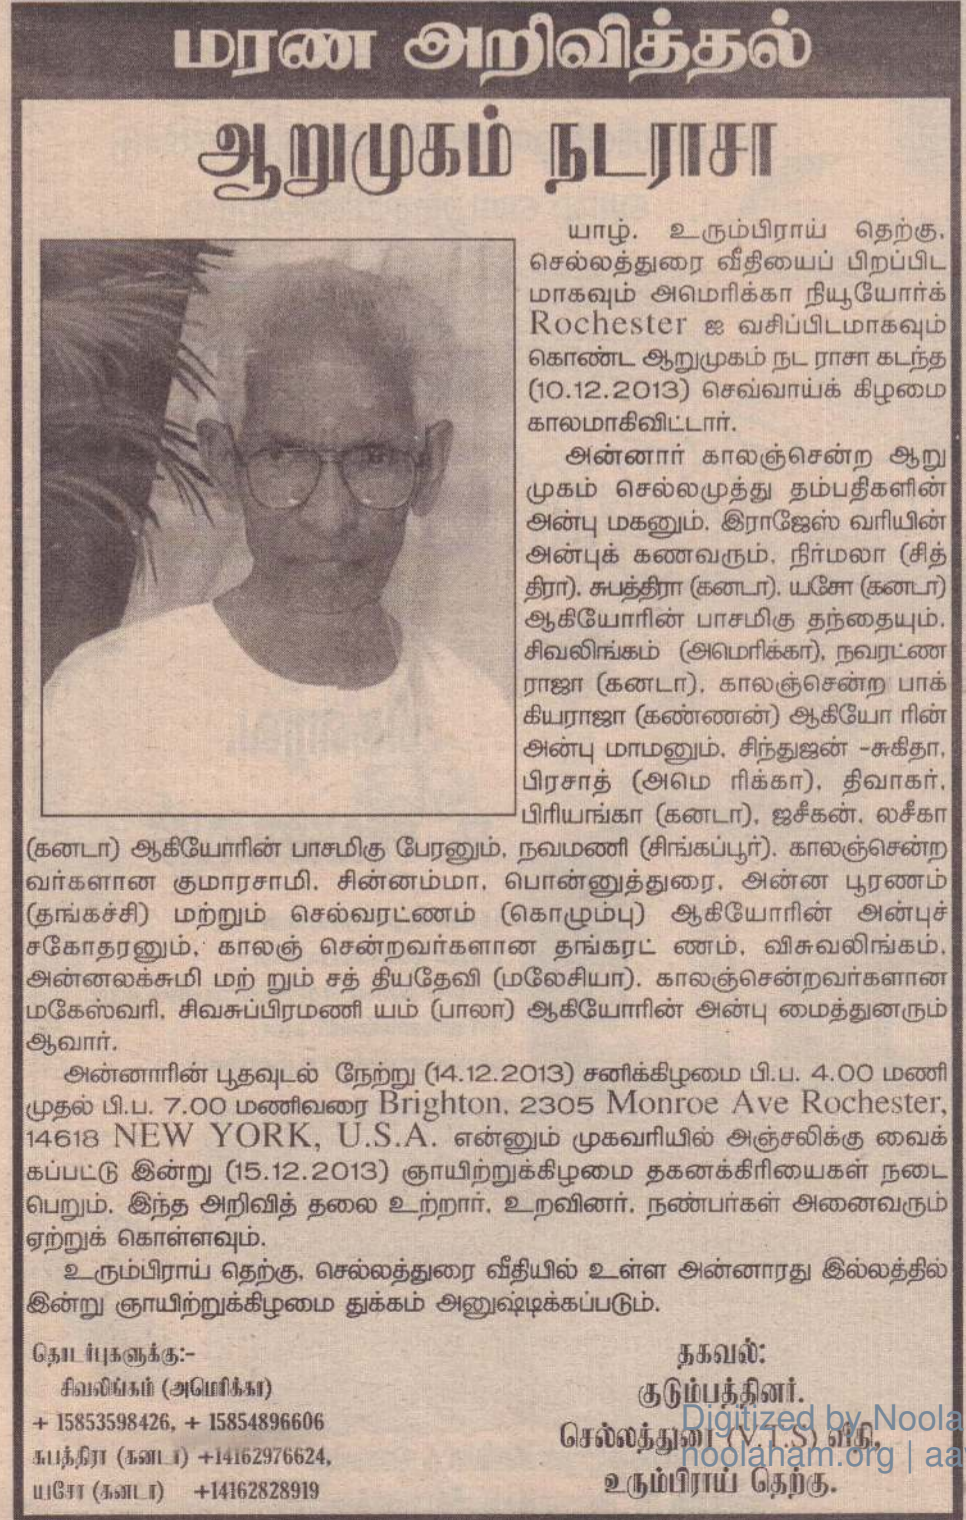 மரண அறிவித்தல்
ஆறுமுகம் நடராசா
யாழ். உரும்பிராய் தெற்கு,
செல்லத்துரை வீதியைப் பிறப்பிட
மாகவும் அமெரிக்கா நியூயோர்க்
Rochester ஐ வசிப்பிடமாகவும்
கொண்ட ஆறுமுகம் நட ராசா கடந்த
(10.12.2013) செவ்வாய்க் கிழமை
காலமாகிவிட்டார்.
அன்னார் காலஞ்சென்ற ஆறு
முகம் செல்லமுத்து தம்பதிகளின்
அன்பு மகனும், இராஜேஸ் வரியின்
அன்புக் கணவரும், நிர்மலா (சித்
திரா), சுபத்திரா (கனடா), யசோ (கனடா)
ஆகியோரின் பாசமிகு தந்தையும்,
சிவலிங்கம் (அமெரிக்கா), நவரட்ண
ராஜா (கனடா), காலஞ்சென்ற பாக்
கியராஜா (கண்ணன்) ஆகியோ ரின்
அன்பு மாமனும், சிந்துஜன் -சுகிதா,
பிரசாத் (அமெ ரிக்கா), திவாகர்,
பிரியங்கா (கனடா), ஜசீகன், லசீகா
(கனடா) ஆகியோரின் பாசமிகு பேரனும், நவமணி (சிங்கப்பூர்), காலஞ்சென்ற
வர்களான குமாரசாமி, சின்னம்மா, பொன்னுத்துரை, அன்ன பூரணம்
(தங்கச்சி) மற்றும் செல்வரட்ணம் (கொழும்பு) ஆகியோரின் அன்புச்
சகோதரனும், காலஞ் சென்றவர்களான தங்கரட் ணம், விசுவலிங்கம்,
அன்னலக்சுமி மற் றும் சத் தியதேவி (மலேசியா), காலஞ்சென்றவர்களான
மகேஸ்வரி, சிவசுப்பிரமணி யம் (பாலா) ஆகியோரின் அன்பு மைத்துனரும்
ஆவார்.
அன்னாரின் பூதவுடல் நேற்று (14.12.2013) சனிக்கிழமை பி.ப. 4.00 மணி
முதல் பி.ப. 7.00 மணிவரை Brighton, 2305 Monroe Ave Rochester,
14618 NEW YORK, U.S.A. என்னும் முகவரியில் அஞ்சலிக்கு வைக்
கப்பட்டு இன்று (15.12.2013) ஞாயிற்றுக்கிழமை தகனக்கிரியைகள் நடை
பெறும். இந்த அறிவித் தலை உற்றார், உறவினர், நண்பர்கள் அனைவரும்
ஏற்றுக் கொள்ளவும்.
உரும்பிராய் தெற்கு, செல்லத்துரை வீதியில் உள்ள அன்னாரது இல்லத்தில்
இன்று ஞாயிற்றுக்கிழமை துக்கம் அனுஷ்டிக்கப்படும்.
தொடர்புகளுக்கு:-
சிவலிங்கம் (அமெரிக்கா)
+ 15853598426, + 15854896606
சுபத்திரா (கனடா) +14162976624,
யசோ (கனடா) +14162828919
தகவல்:
குடும்பத்தினர்.
செல்லத்துரை (V.T.S) வீதி,
உரும்பிராய் தெற்கு.
Digitized by Noola
noolaham.org | aa